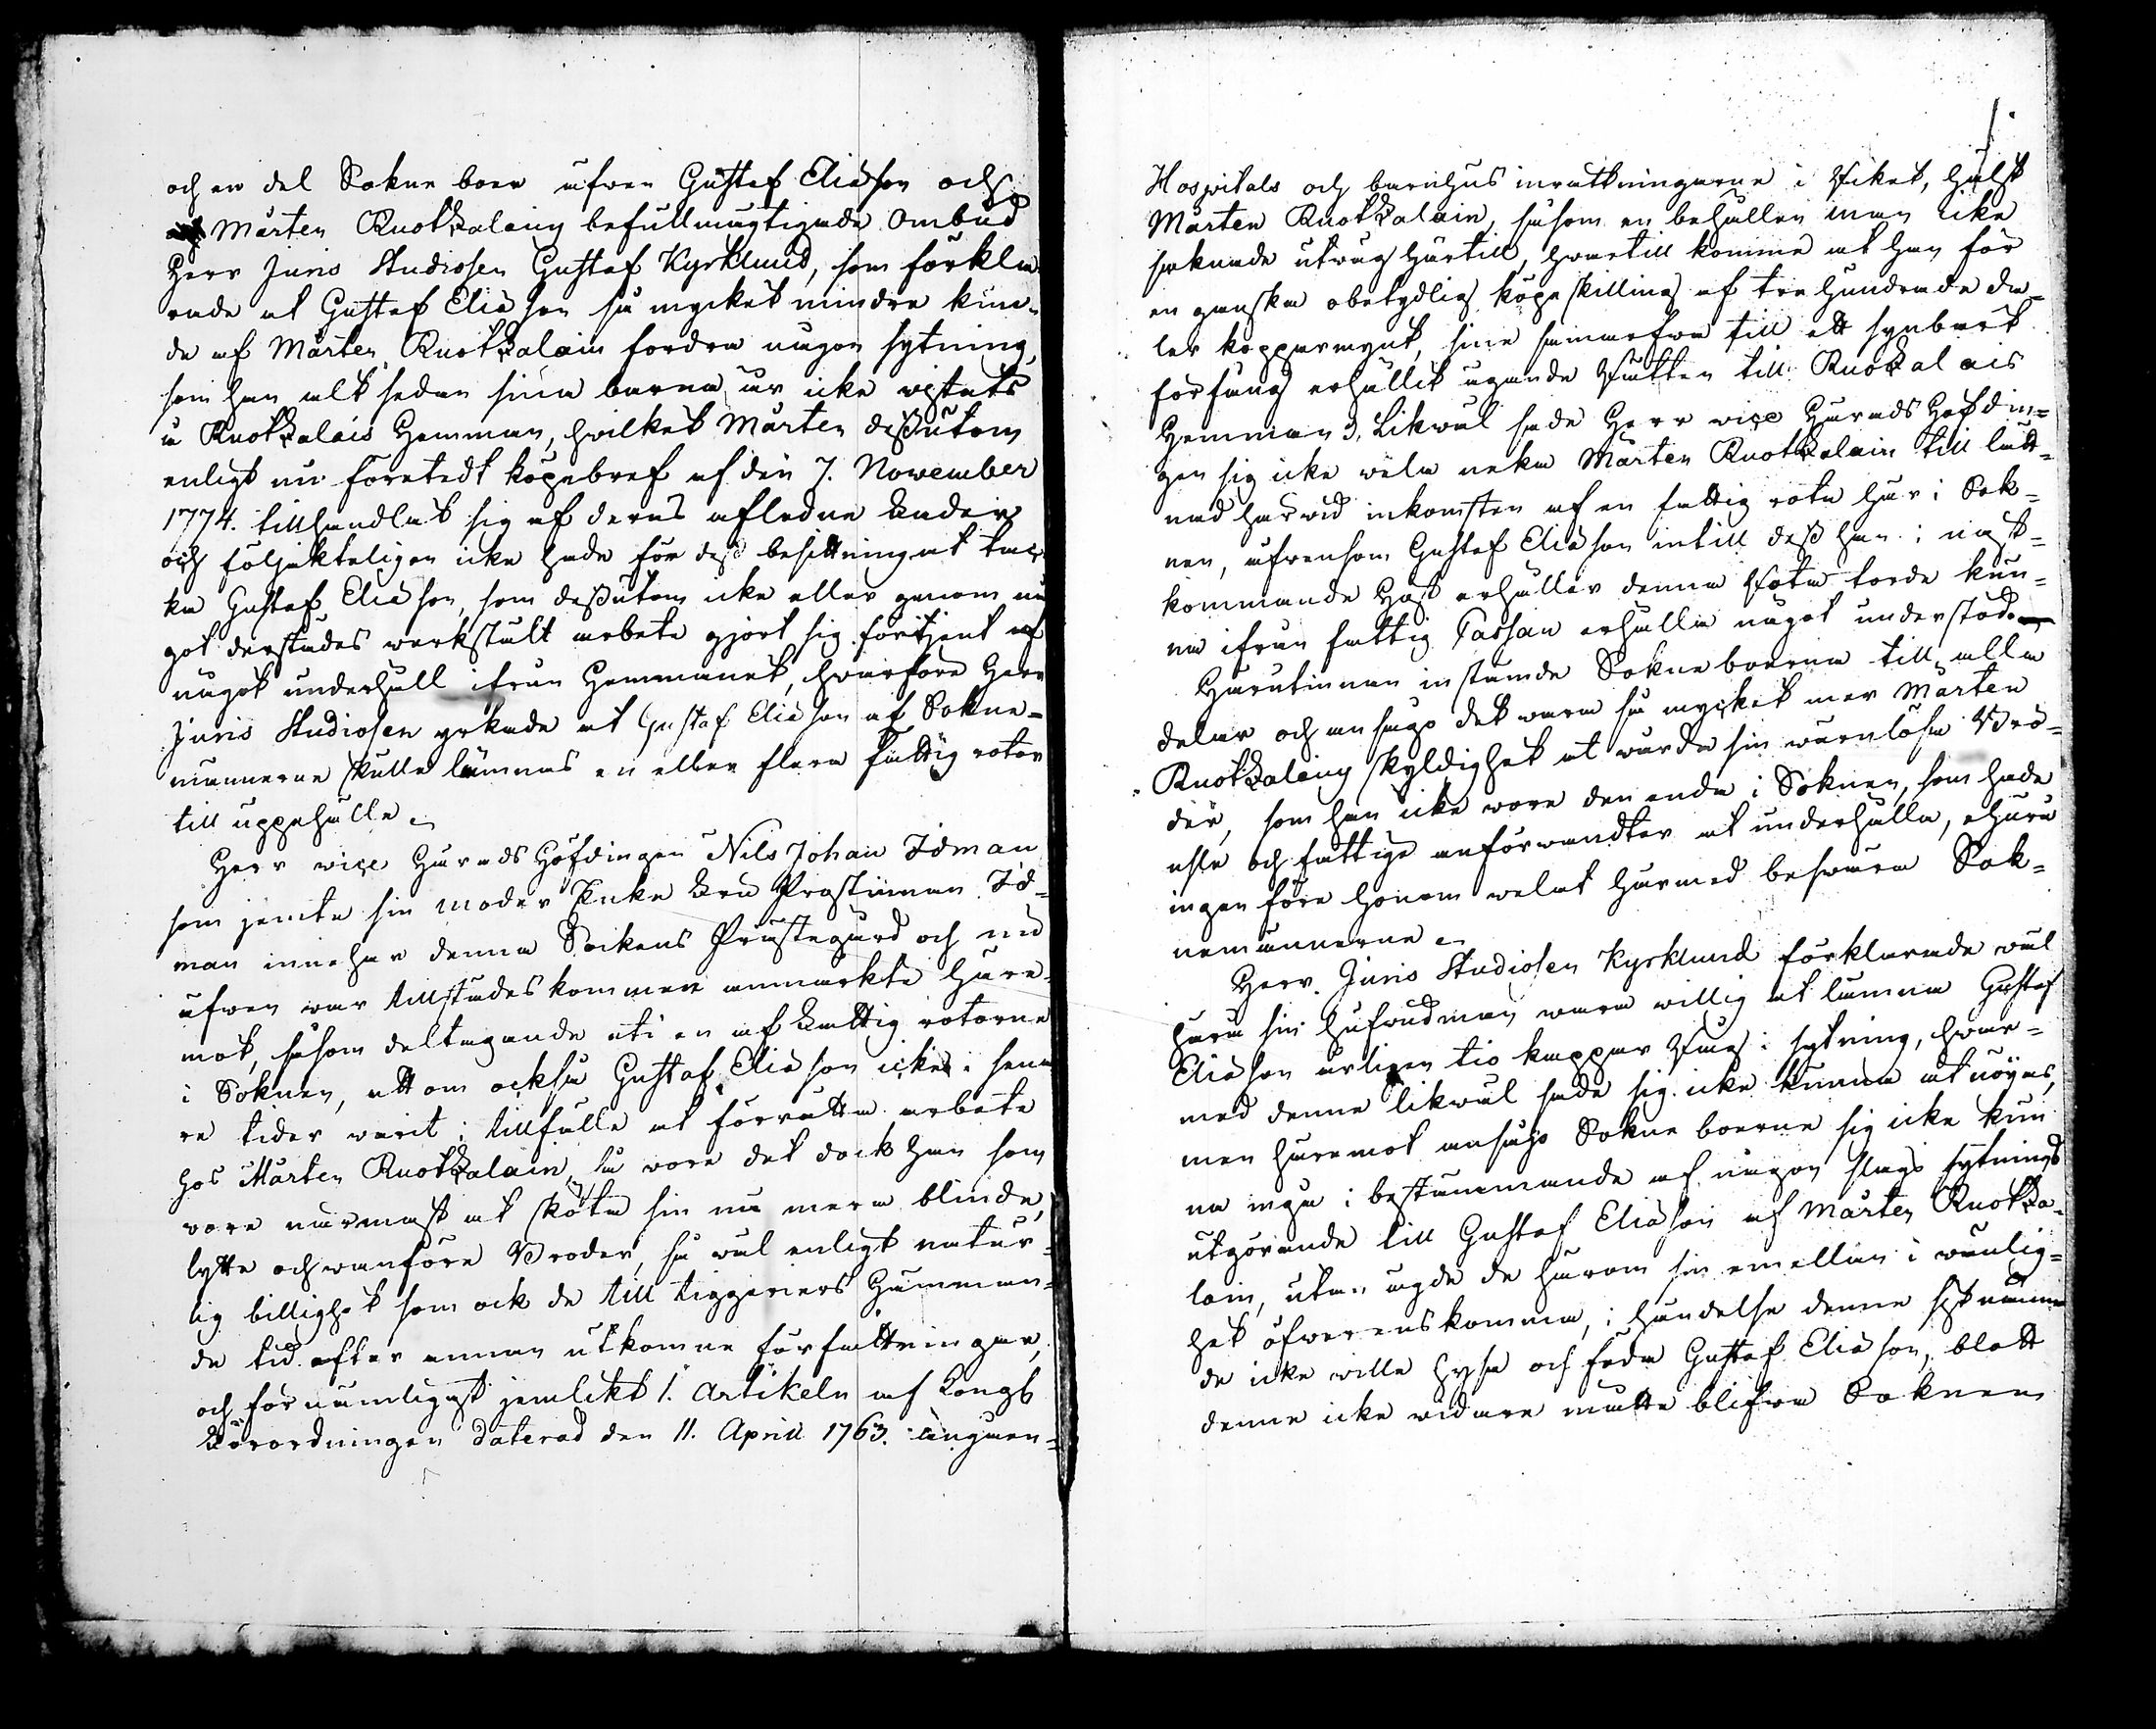 och en del Sokne boer äfwen Gustaf Eliasson och
Mårten Ruotzalains befullmägtigade Ombud
Herr Juris Studiosen Gustaf Kyrklund, som förkla-
rade at Gustaf Eliasson så mycket mindre kun-
de af Mårten Ruotzalain fordra någon sytning,
som han alt sedan sina barna år icke vistats
å Ruotzalais Hemman, hvilket Mårten dessutom
enligt nu företedt köpebref af den 7. November
1774. tillhandlat sig af deras afledne Fader
och följakteligen icke hade för dess besittning at tac-
ka Gustaf Eliasson, som dessutom icke eller genom nå
got derstädes werkstält arbete gjort sig förtjent af
något underhåll ifrån Hemmanet, hwarföre Herr
Juris Studiosen yrkade at Gustaf Eliasson af Sokne-
männerne skulle lämnas en eller flera fattig rotar
till uppehälle.
Herr vice Härads Höfdingen Nils Johan Idman
som jemte sin moder Enke Fru Prostinnan Id-
man innehar denna Sockens Prästegård och nu
äfwen war tillstädes kommen anmärkte häre-
mot, såsom deltagande uti en af Fattig rotarne
i Soknen, att om också Gustaf Eliasson icke i sena
re tider warit i tillfälle at förrätta arbete
hos Mårten Ruotzalain, så wore det dock han som
wore närmast at sköta sin nu mera blinde,
lytte och wanföre Broder, så wäl enligt natur-
lig billighet som ock de till tiggeriers hämman-
de tid efter annan utkomne författningar,
och för nämligast jemlikt 1. Artikeln af Kongl
Förordningen daterad den 11. April 1763. angåen-
Hospitals och barnhus inrättningarne i Riket, hälst
Mårten Ruotzalain, såsom en behållen man icke
saknade utwäg härtill, hwartill komme at han för
en ganska obetydlig köpeskilling af tre hundrade da-
ler kopparmynt, sine samarfwa till ett synbart
förfång erhållit ägande Rätten till Ruotzalais
Hemman. Likwäl sade Herr vice Härads Höfdin-
gen sig icke wela neka Mårten Ruotzalain till lätt-
nad härwid inkomsten af en fattig rota här i Sok-
nen, äfwensom Gustaf Eliasson intill dess han i näst-
kommande Höst erhåller denna Rota torde kun-
na ifrån fattig Cassan erhålla något understöd.
Härutinnan instämde Sokneboerna till alla
delar och ansågo det wara så mycket mer Mårten
Ruotzalains skyldighet at wårda sin wärnlösa Bro-
der, som han icke wore den enda i Soknen, som hade
usle och fattige anförwandter at underhålla, ehuru
ingen före honom welat härmed beswära Sok-
nemännerne.
Herr Juris Studiosen Kyrklund förklarade wäl
huru sin hufwudman wara willig at lämna Gustaf
Eliasson årligen tio kappar Råg i sytning, hwar-
med denne likwäl sade sig icke kunna åt nöyas,
men häremot ansågo Sokne boerne sig icke kun
na ingå i bestämmande af någon slags sytnings
utgörande till Gustaf Eliasson af Mårten Ruotza-
lain, utan ägde de härom sin emellan i wänlig-
het öfwerenskomma, i händelse denne sistnämn
de icke wille hysa och föda Gustaf Eliasson, blott
denne icke widare måtte blifwa Soknen